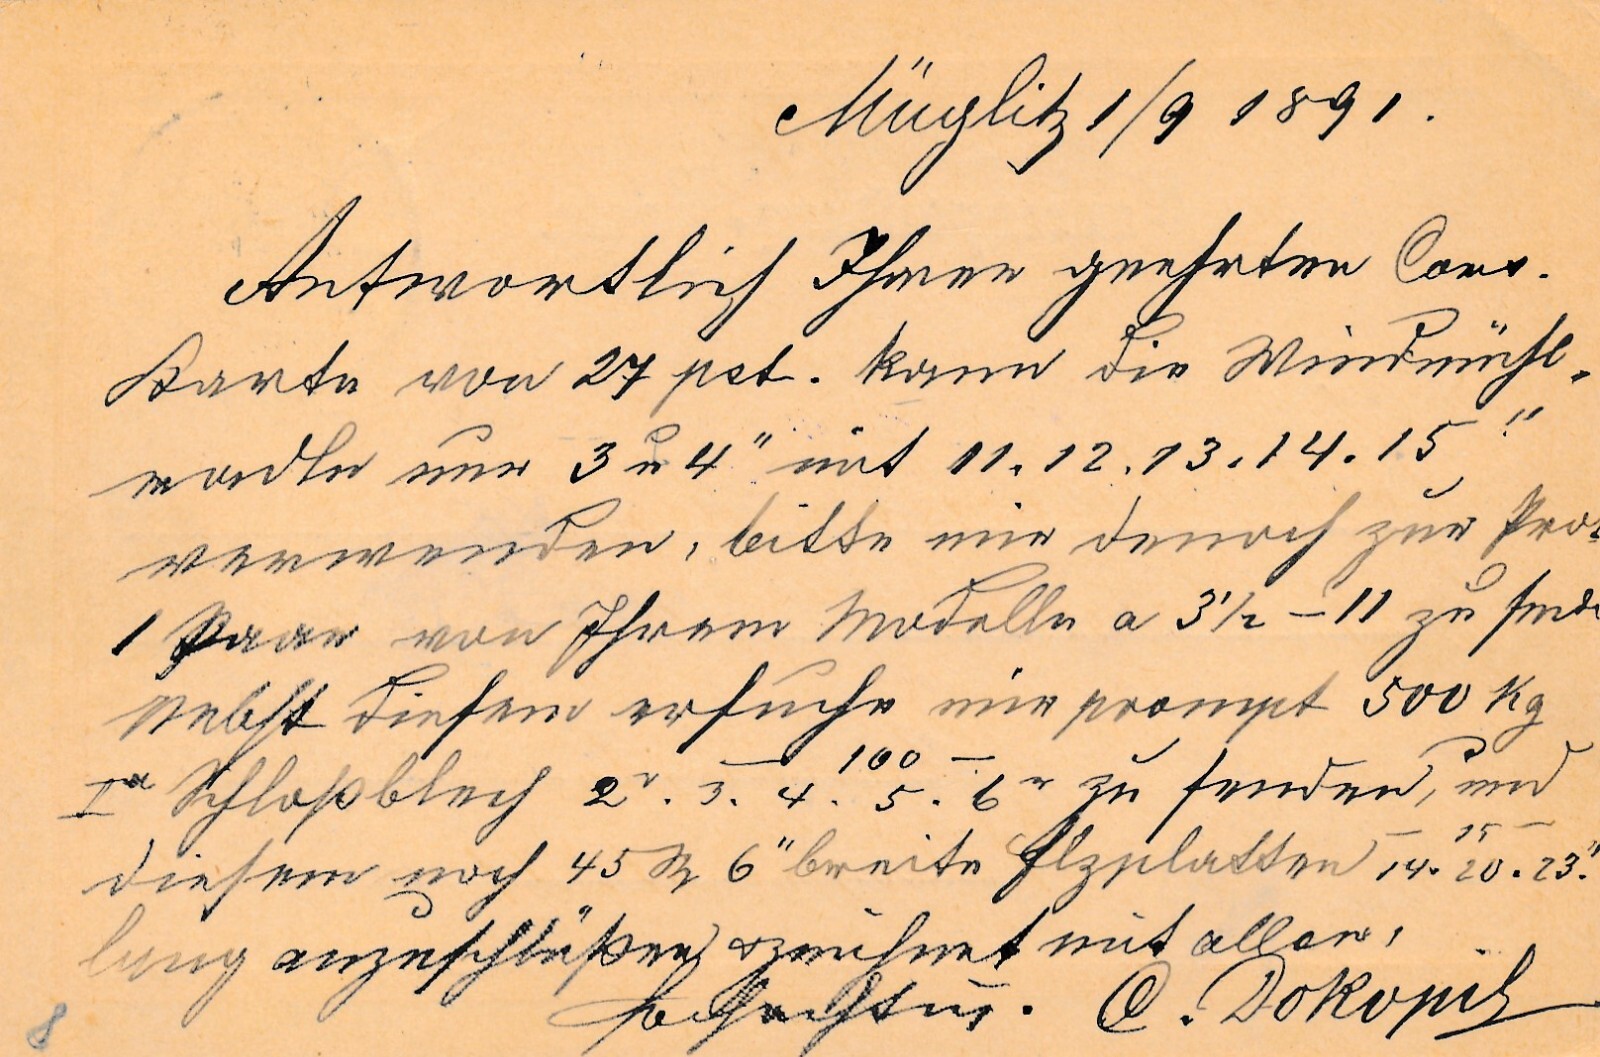 Müglitz 1/9 1891.
Antwortlich Ihrer geehrten Corr.
Karte von 27 pst. kann die Windmühl-
modle nur 3 u 4" mit 11. 12. 13. 14. 15"
verwenden, bitte mir denoch zur Pro
1 Paar von Ihrem Modelle a 3 1/2 – 11 zu send
Nebst diesem ersuche mir prompt 500 Kg
Ia Schloßblech 2". 3. 4. 5. 6" zu senden, und
100
diesem noch 45 6" breite Hzplatten 14. 15 20. 23."
lang anzuschlüßen & zeichnet mit aller,
C. Dokoupil
8